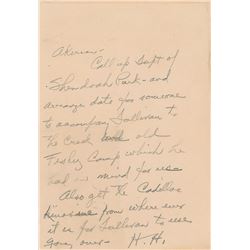 Akerson-
Call up Supt of
Shendoah Park- and
arrange date for someone
to accompany Sullivan to
the Creek and old
Camp which he
had in mind for us
Also get the Cadillac
from where ever
it is for Sullivan to use
Going over- H.H.